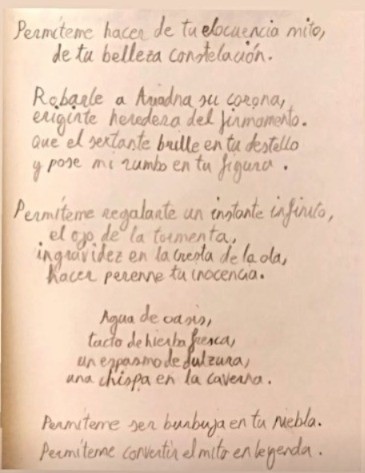 Permíteme hacer de tu elocuencia mito,
de tu belleza constelación.
Robarle a Ariadna su corona,
erigirte heredera del firmamento.
que el sextante brille en tu destello
y pose mi rumbo en tu figura.
Permíteme regalarte un instante infinito,
el ojo de la tormenta,
ingravidez en la cresta de la ola,
hacer perenne tu inocencia.
Agua de oasis,
tacto de hierba fresca,
un espasmo de dulzura,
una chispa en la caverna.
Permíteme ser burbuja en tu niebla.
Permíteme convertir el mito en leyenda.